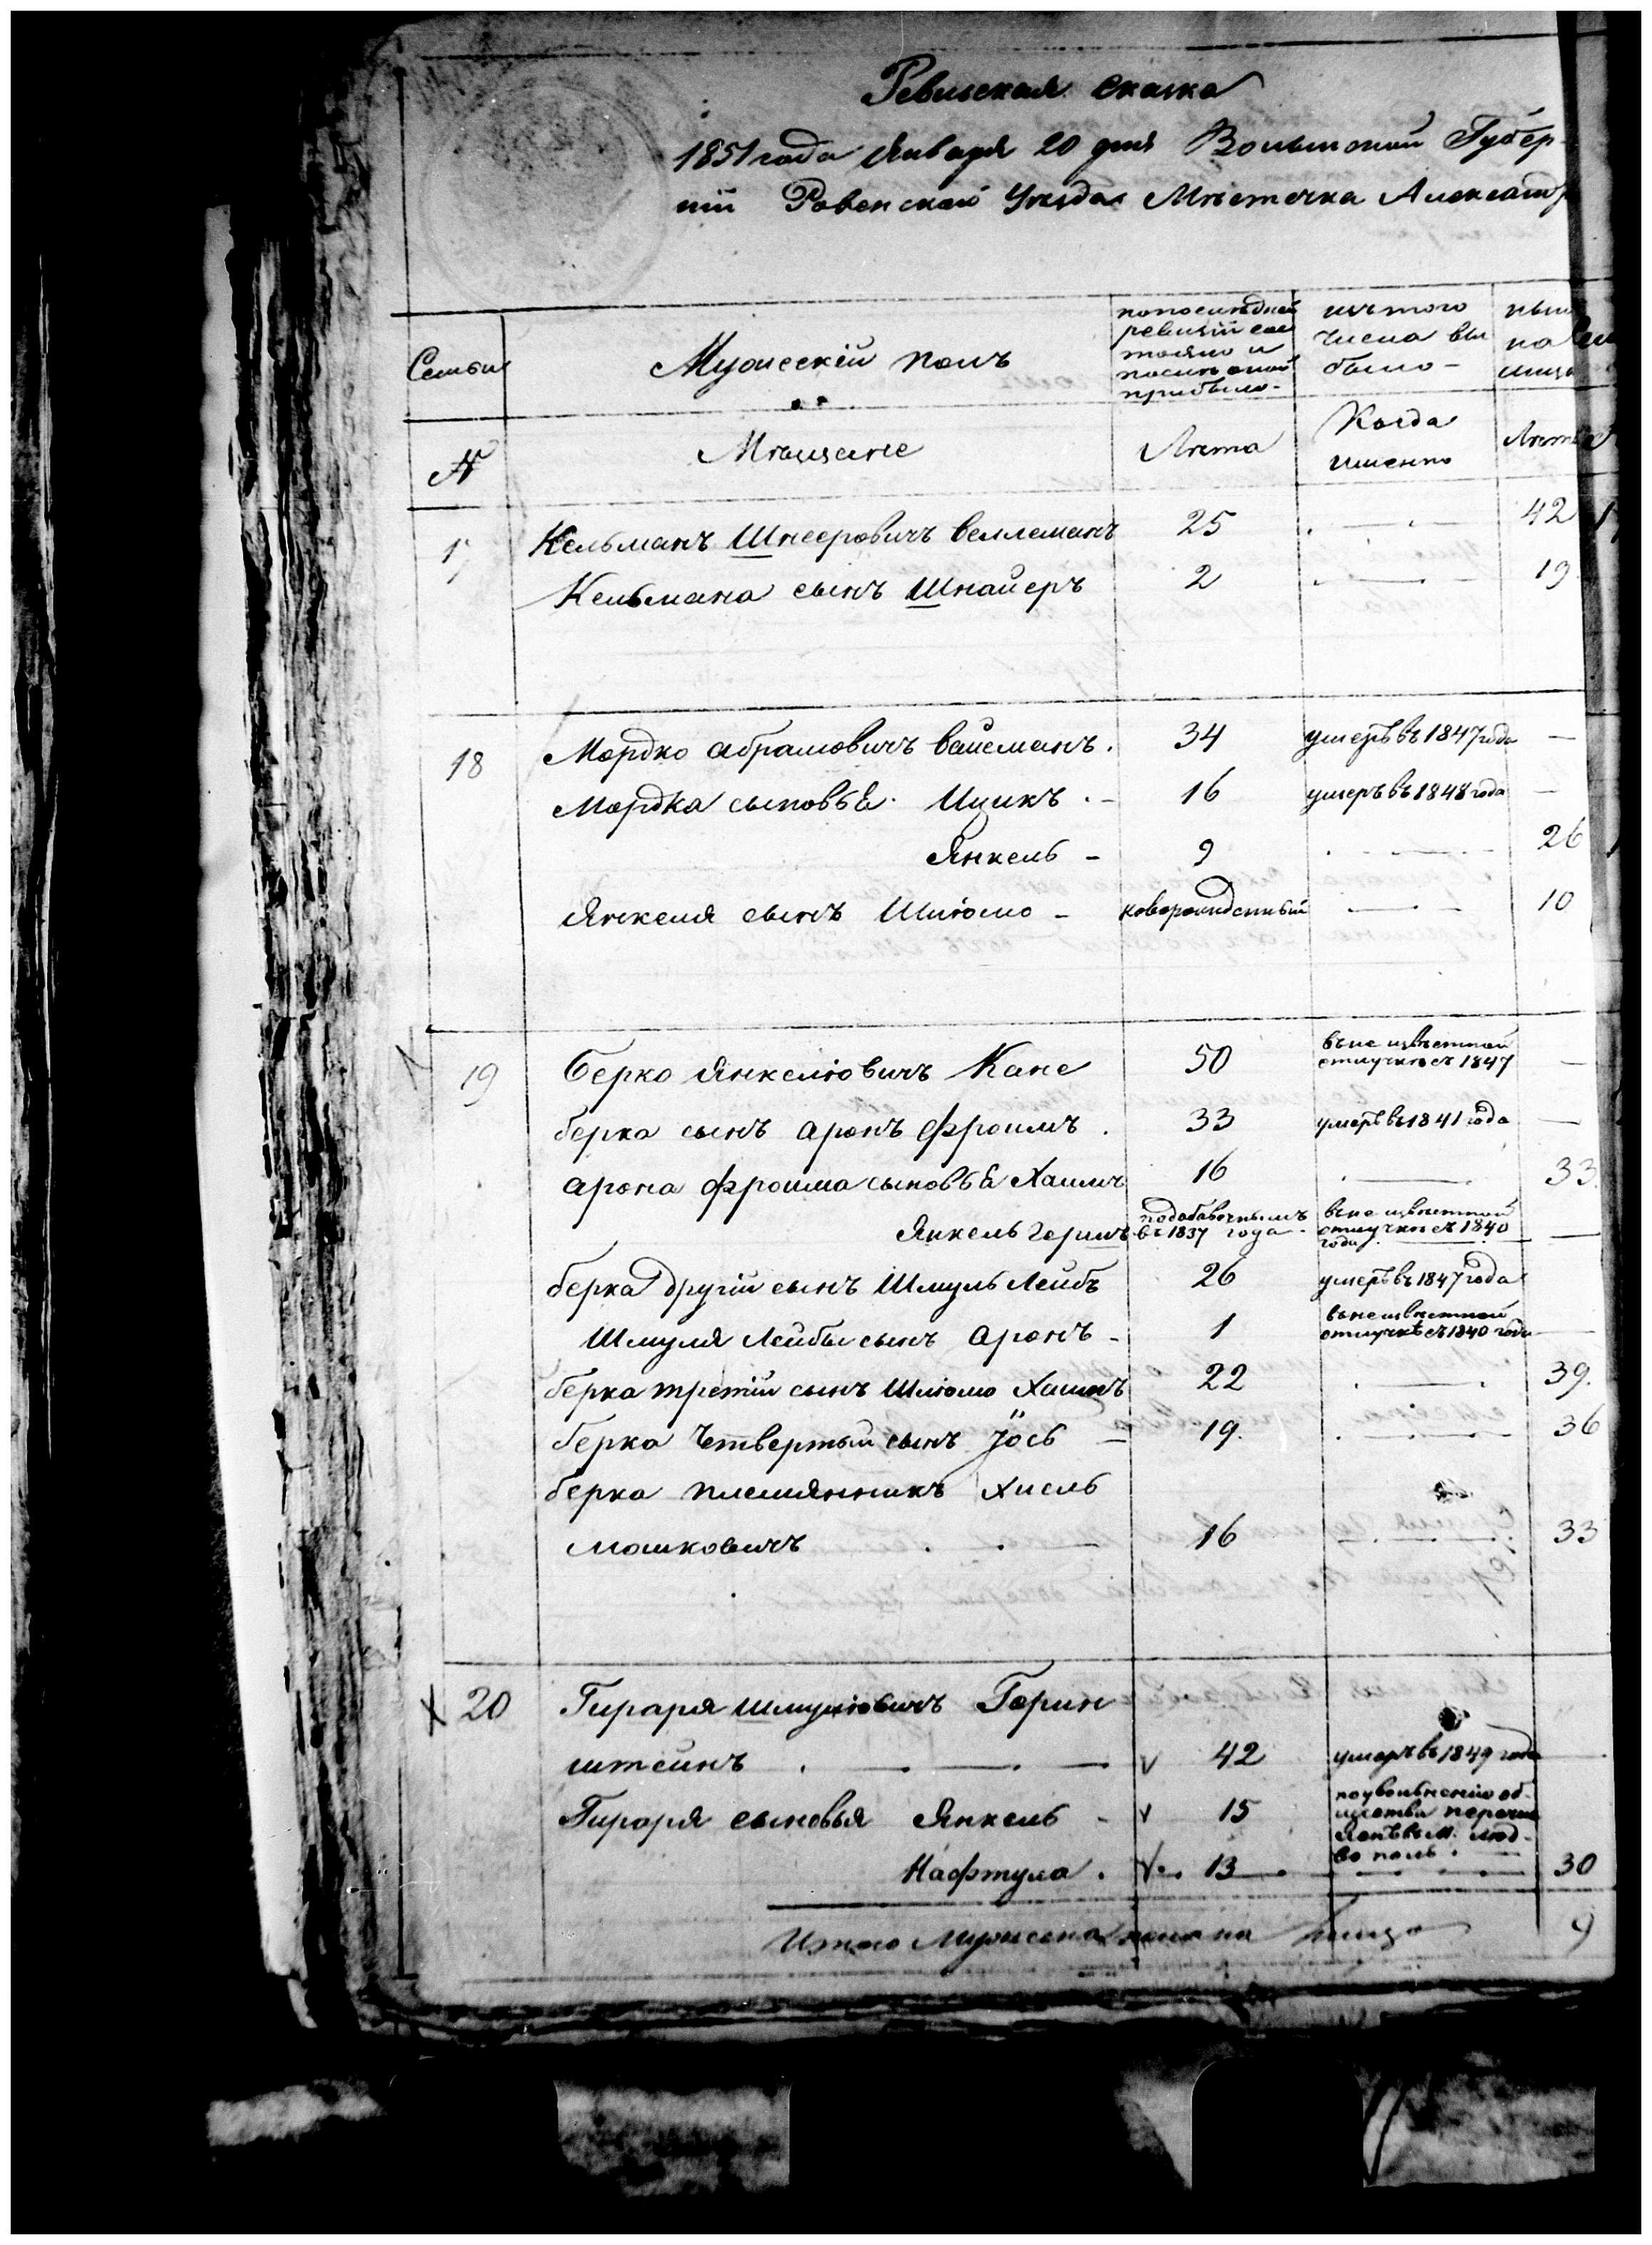 Ревиская сказка
1851 года Января 20 дня Волынской Губер-
ніи Ровенскаго Уезда Мѣстечка Александ
Семьи
Мужескій полъ
попоследней
ревизіи сос
тояло и
послѣ оной
прибыло-
изътого
числа вы
было-
ныне
на
лицо
N
Мѣщане
Лета
Когда
имянно
Лета
17 Кельманъ Шнееровичъ веллеманъ 25 42
Кельмана сынъ Шнаиеръ 2 19
18 Мордко абрамовичъ ваисманъ. 34 умеръ въ 1847 года —
Мордка сыновьѣ. Ицикъ. - 16 умеръ въ 1848 года —
Янкель - 9 26
Янкеля сынъ Шліомо - новорожденный 10
19 Берко Янкеліовичъ Кане 50 въне извѣстной
отлучке съ 1847 —
берка сынъ аронъ фроимъ. 33 умеръ въ 1841 года —
арона фроима сыновьѣ Хаимъ 16 33.
Янкель Гершъ подобавочнымъ
въ 1837 года въне извѣстной
отлучке съ 1840
года —
берка другій сынъ Шмуль Лейбъ 26 умеръ въ 1847 года
Шмуля Лейбы сынъ аронъ - 1 въне извѣстной
отлучкѣ съ 1840 года —
берка третій сынъ Шліомо Хаимъ 22 39.
берка Четвертый сынъ Іось — 19. 36
берка племянникъ Хисль
мошковичъ 16 33
X 20 Гираря Шмуліовичъ Горин
штейнъ v 42 умеръ въ 1849 года
Гираря сыновья Янкель - v 15 поувольнению об-
щества перечис
ленъ въ М. люд-
во поль.
Нафтула. v. 13 30
Итого Мужеска пола на лицо 9